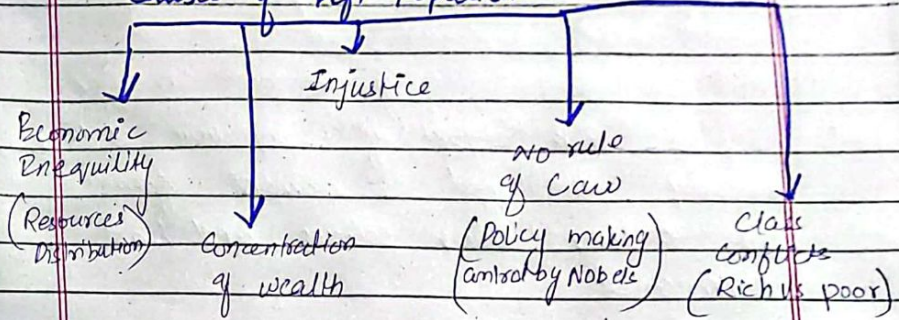 of
Injustice
Economic
Enequility
(Resources
Distribution)
Concentration
of wealth
NO rule
of Law
(Policy making
control by Nobels)
Class
conflicts
(Rich vs poor)